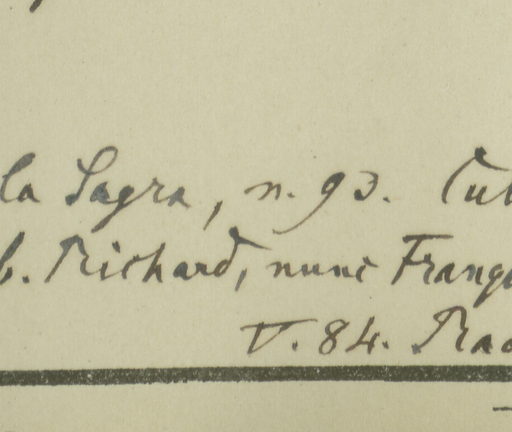 la Sagra, n. 93. Cub
b. Richard, nunc Franqu
V. 84. Rad